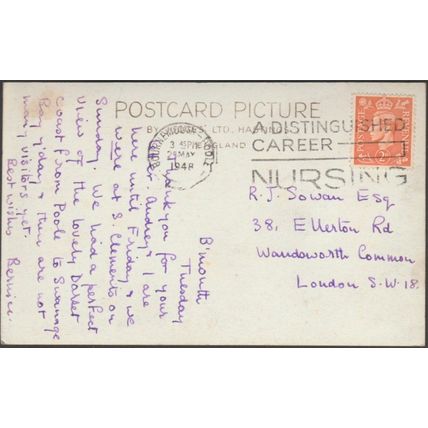 POSTCARD PICTURE
BY JUDGES LTD. HASTINGS
ENGLAND
BOURNEMOUTH POOLE
3 15PM
25 MAY
1948
A DISTINGUISHED
CAREER
NURSING
POSTAGE REVENUE
2D
B'mouth
Tuesday
thank you for your
letter. Audrey & I are
here until Friday & we
were at S. Clements on
Sunday. We had a perfect
view of the lovely Dorset
Coast from Poole to Swanage
Bay y'day & there are not
many visitors yet.
Best wishes Bernice.
R. J. Sowan Esq
38, Ellerton Rd
Wandsworth Common
London S.W.18.